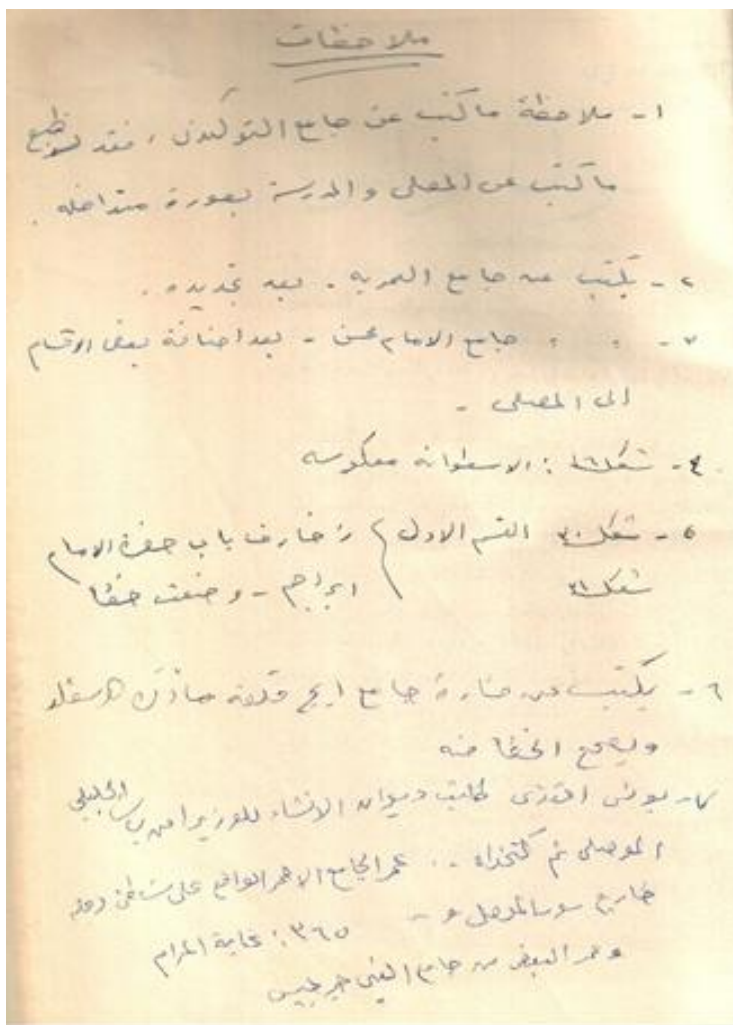 ملاحظات
١- ملاحظة ما كتب عن جامع التوكندي، فقد
ما كتب عن المصلى والمدرسة بصورة متداخله.
٢- يكتب عن جامع العمريه. بعد تجديده.
٣- : : جامع الامام محسن - بعد اضافة بعض الاقسام
الى المصلى -
٤- شكل ١٦: الاسطوانه معكوسه
٥- شكل ٣٠ القسم الاول } زخارف باب حضرة الامام
شكل ٣١ ابراهيم - وضعت خطأ
٦- يكتب عن منارة جامع ايج قلعه
ويصحح الخطأ منه
٧- يونس افندي كاتب ديوان الانشاء للوزير امين باشا الجليلي
الموصلي ثم كتخداه .. عمر الجامع الاحمر الواقع على شاطئ دجلة
خارج سور الموصل - ٣٦٥: غاية المرام
وعمر البعض من جامع النبي جرجيس